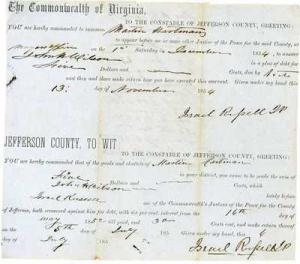 The Commonwealth of Virginia,
TO THE CONSTABLE OF JEFFERSON COUNTY, GREETING:
YOU are hereby commanded to summon Martin Eastman
to appear before me or some other Justice of the Peace for the said County, at
my office on the 1st Saturday in December 1854, to answer
John A Wilson in a plea of debt for
Nine Dollars and Cents, due by Note
and then and there make return how you have executed this warrant. Given under my hand this
13th day of November 1854
Israel Russell JP
JEFFERSON COUNTY, TO WIT
TO THE CONSTABLE OF JEFFERSON COUNTY, GREETING:
YOU are hereby commanded that of the goods and chattels of Martin Eastman
in your district, you cause to be made the sum of
Nine Dollars and Cents, which
John A Wilson
Israel Russell one of the Commonwealth's Justices of the Peace for the County
of Jefferson, hath recovered against him for debt, with interest from the 16th
day of May 1852 till paid, and 30 Cents cost, and make return thereof
on the 5th day of July 185 Given under my hand this 6
day of July 185
Israel Russell JP